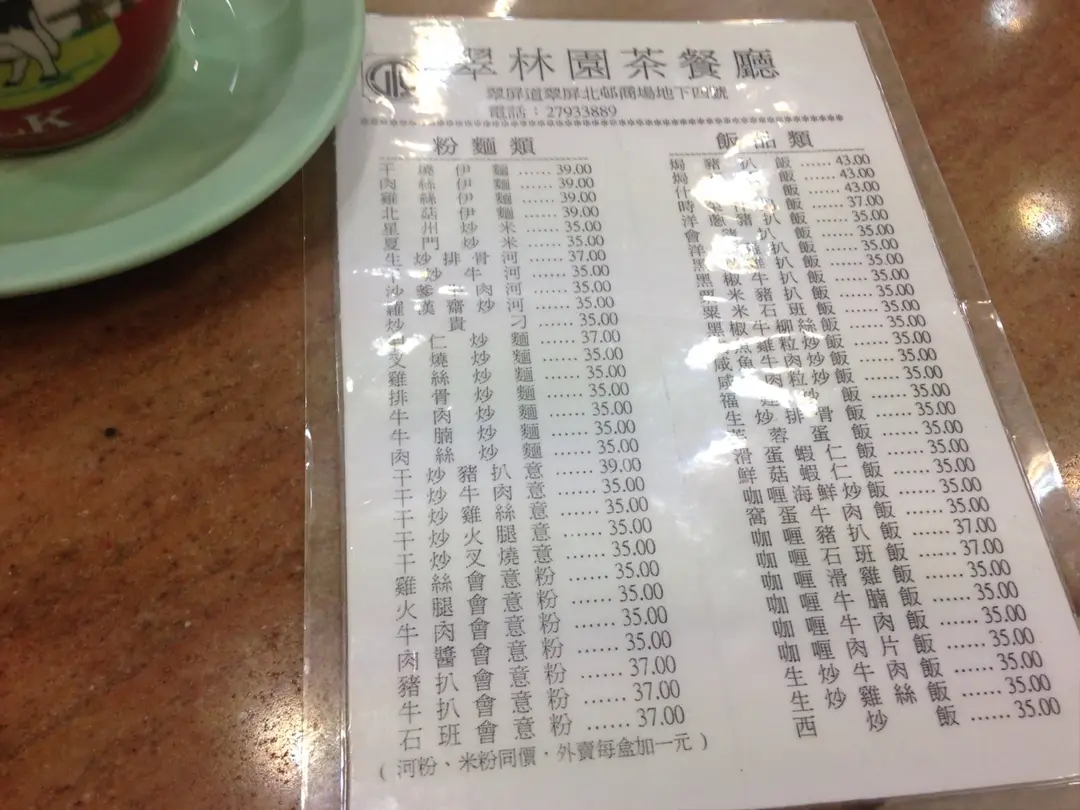 翠林園茶餐廳
翠屏道翠屏北邨商場地下四號
電話：27933889
粉麵類
干燒伊麵 ...... 39.00
肉絲伊麵 ...... 39.00
雞絲伊麵 ...... 39.00
北菇伊麵 ...... 39.00
星州炒米 ...... 35.00
廈門炒米 ...... 35.00
生炒排骨河 ...... 37.00
炒牛河 ...... 35.00
沙爹牛肉河 ...... 35.00
羅漢齋炒河 ...... 35.00
炒貴刁 ...... 35.00
仁炒麵 ...... 37.00
叉燒炒麵 ...... 35.00
雞絲炒麵 ...... 35.00
排骨炒麵 ...... 35.00
牛肉炒麵 ...... 35.00
牛腩炒麵 ...... 35.00
肉絲炒麵 ...... 35.00
干炒豬扒意 ...... 39.00
干炒牛肉意 ...... 35.00
干炒雞絲意 ...... 35.00
干炒火腿意 ...... 35.00
干炒叉燒意 ...... 35.00
雞絲會意粉 ...... 35.00
火腿會意粉 ...... 35.00
牛肉會意粉 ...... 35.00
肉醬會意粉 ...... 35.00
豬扒會意粉 ...... 37.00
牛扒會意粉 ...... 37.00
石班會意粉 ...... 37.00
( 河粉、米粉同價，外賣每盒加一元 )
飯品類
焗豬扒飯 ...... 43.00
焗飯 ...... 43.00
什飯 ...... 43.00
時扒飯 ...... 37.00
洋蔥豬扒飯 ...... 35.00
扒飯 ...... 35.00
扒飯 ...... 35.00
黑椒牛扒飯 ...... 35.00
黑椒豬扒飯 ...... 35.00
粟米石班飯 ...... 35.00
生炒排骨飯 ...... 35.00
蓉蛋飯 ...... 35.00
滑蛋蝦仁飯 ...... 35.00
鮮菇蝦仁飯 ...... 35.00
咖喱海鮮飯 ...... 35.00
窩蛋牛肉飯 ...... 35.00
咖喱豬扒飯 ...... 37.00
咖喱石班飯 ...... 37.00
咖喱滑雞飯 ...... 35.00
咖喱牛腩飯 ...... 35.00
咖喱牛肉飯 ...... 35.00
咖喱肉片飯 ...... 35.00
生炒牛肉飯 ...... 35.00
生炒雞絲飯 ...... 35.00
西炒飯 ...... 35.00